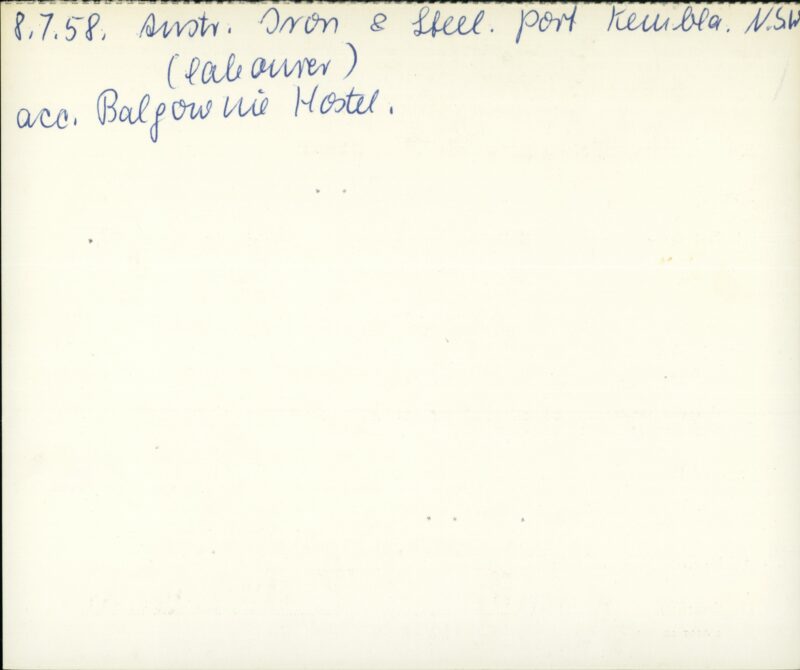 8.7.58. Austr. Iron & Steel. Port Kembla. N.S.W
(labourer)
acc. Balgownie Hostel.